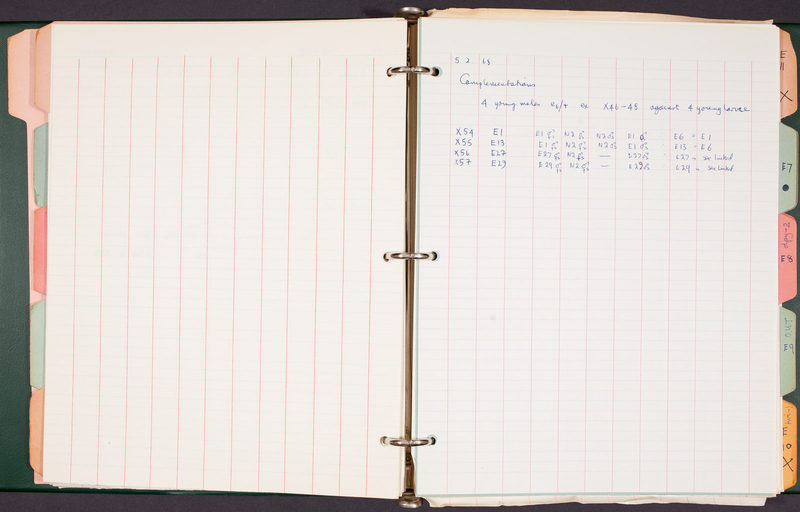 5. 2. 68
Complementations
4 young males e6/+ ex X46-48 against 4 young larvae
X54 E1 E1 ⚥ N2 ⚥ N2 ♂ E1 E6 = E1
X55 E13 E1 ⚥ N2 ⚥ N2 ♂ E1 ♂ E13 = E6
X56 E27 E27 ⚥ N2 ⚥ — E27 ♂ E27 = sex linked
X57 E29 E29 ⚥ N2 ⚥ — E29 ♂ E29 = sex linked
E
11
X
E7
dpy-2
E8
E9
E
10
X